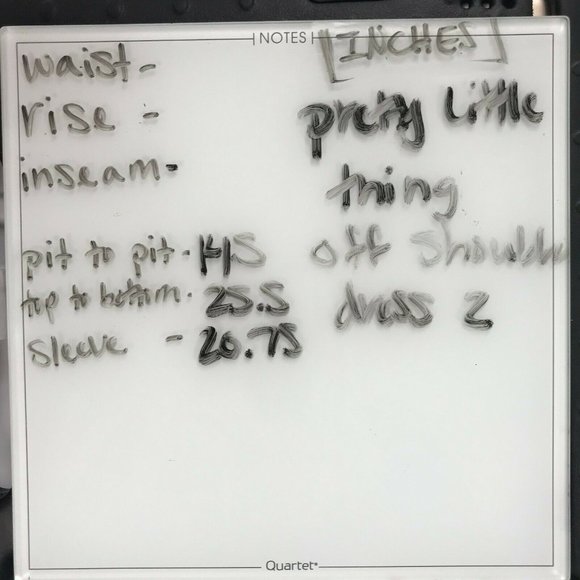 NOTES
[INCHES]
waist-
rise -
inseam-
pretty little
thing
off shoulder
dress 2
pit to pit - 14.5
top to bottom - 25.5
sleeve - 20.75
Quartet